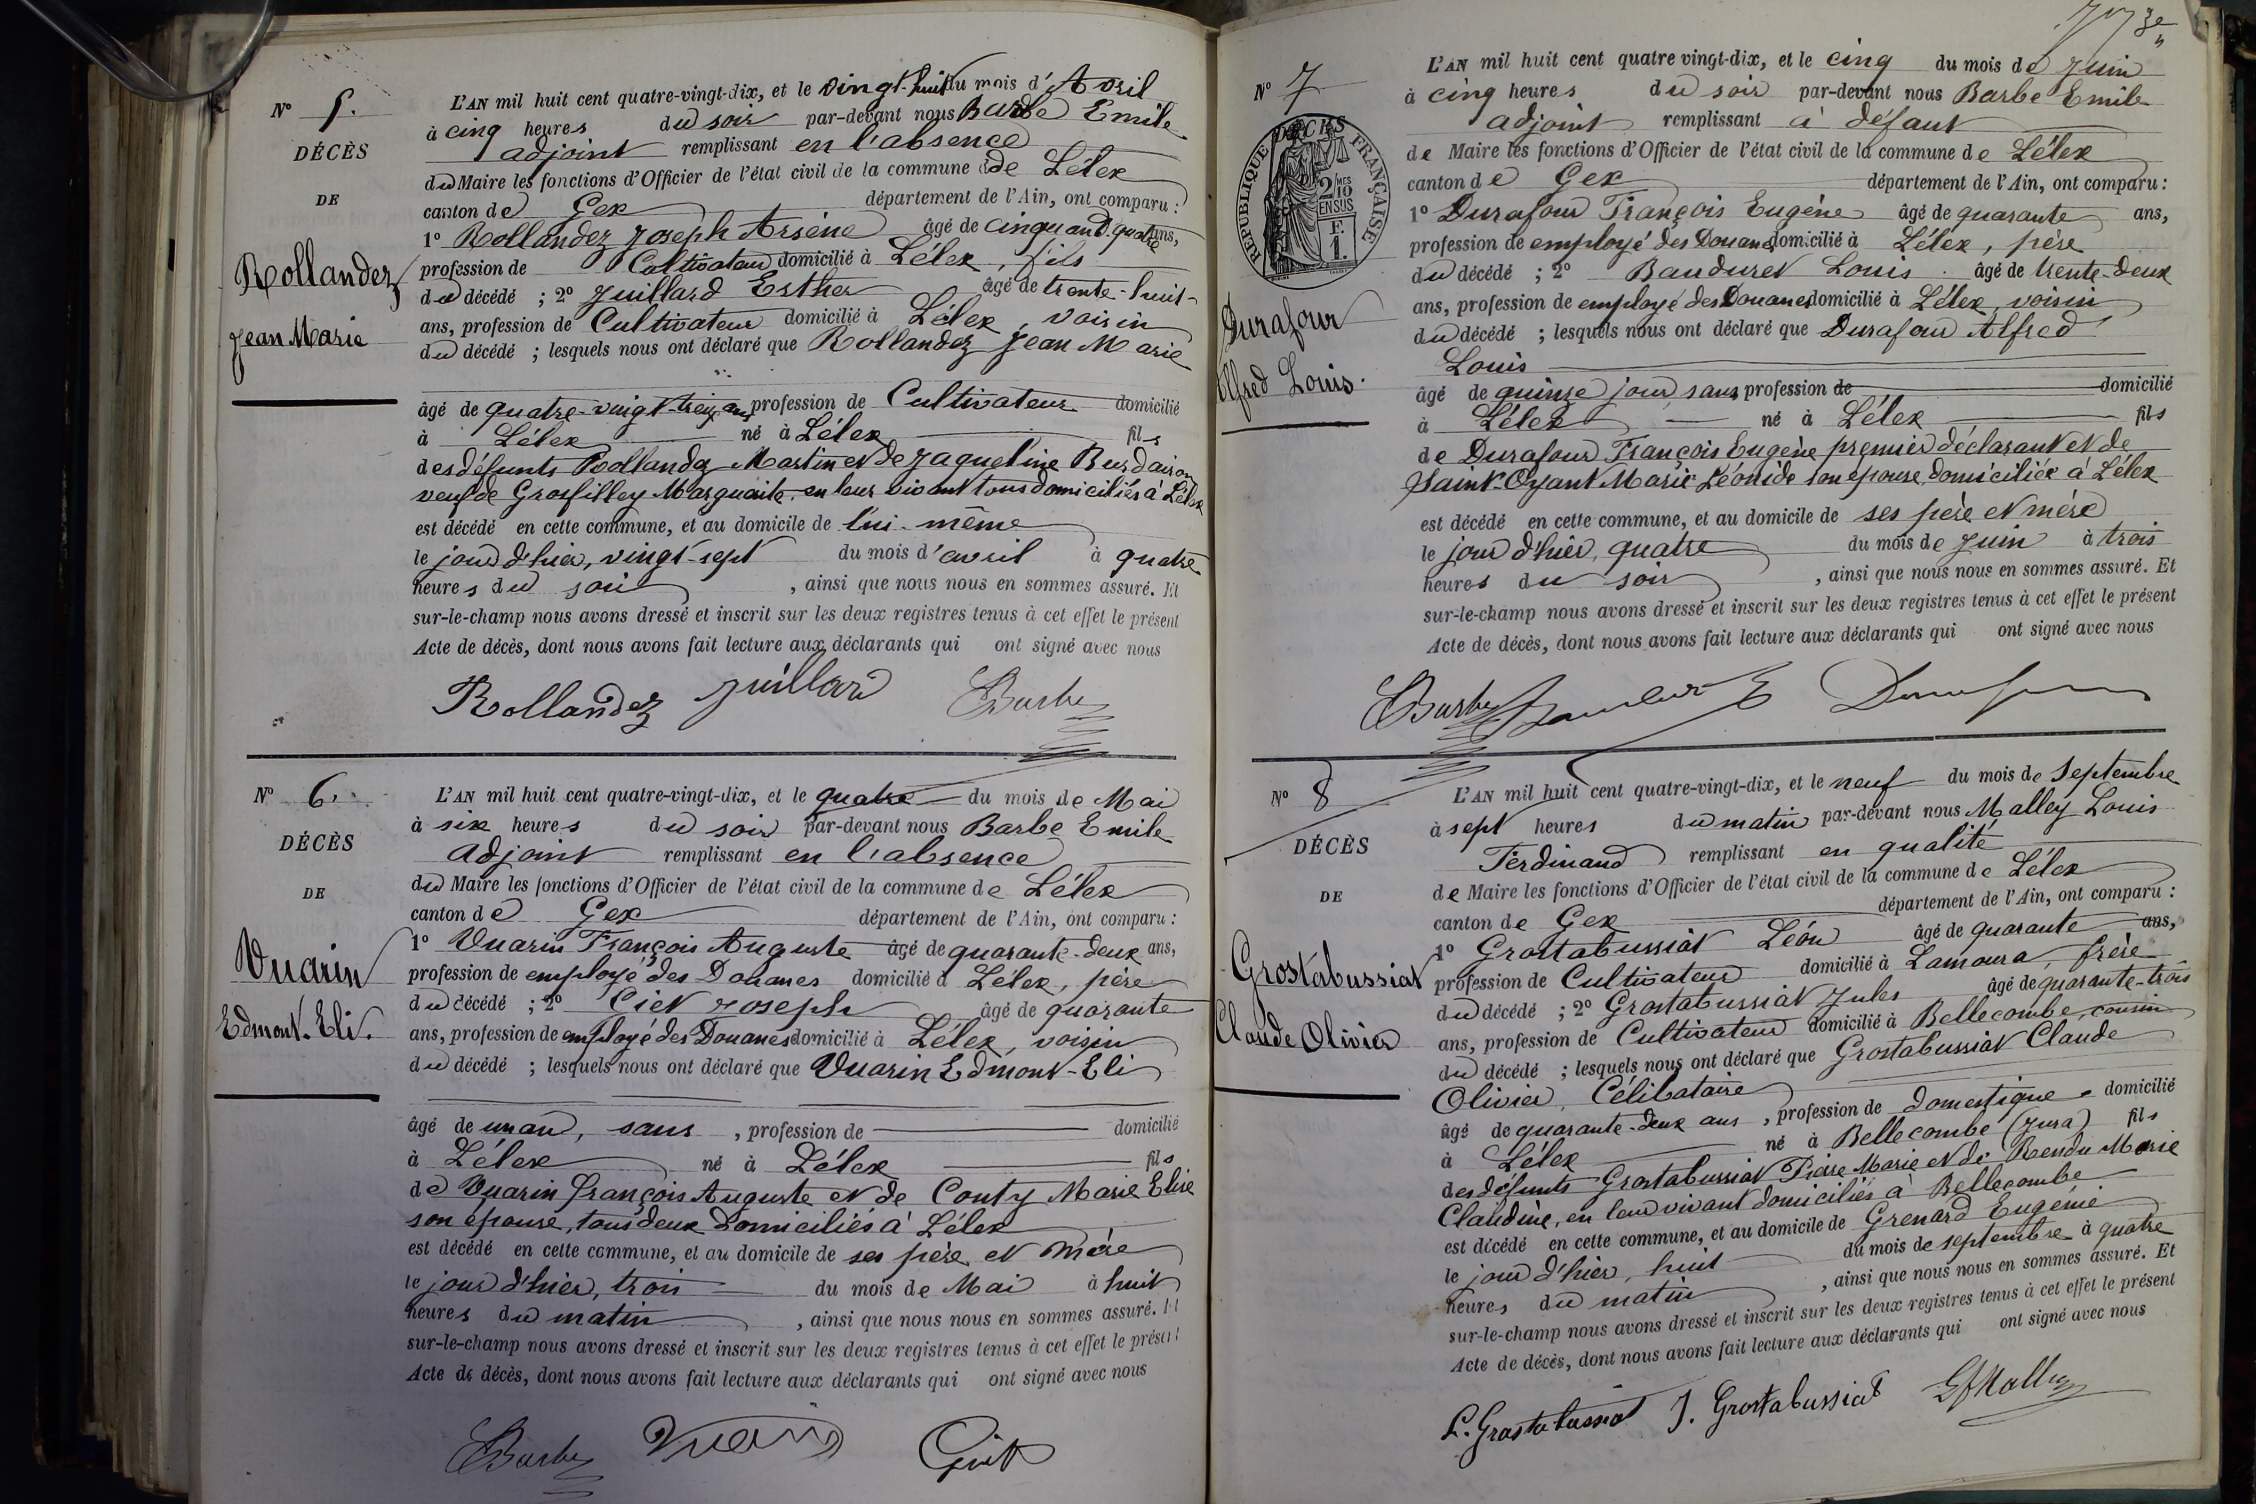 N° 5.
DÉCÈS
DE
Rollandez
Jean Marie
L'AN mil huit cent quatre-vingt-dix, et le vingt-huit du mois d'Avril
à cinq heures du soir par-devant nous Barbe Emile
adjoint remplissant en l'absence
du Maire les fonctions d'Officier de l'état civil de la commune de Lélex
canton de Gex département de l'Ain, ont comparu :
1° Rollandez Joseph Arsène âgé de cinquante quatre ans,
profession de Cultivateur domicilié à Lélex, fils
du décédé ; 2° Juillard Esther âgé de trente-huit
ans, profession de Cultivateur domicilié à Lélex, voisin
du décédé ; lesquels nous ont déclaré que Rollandez Jean Marie
âgé de quatre-vingt-treize ans profession de Cultivateur domicilié
à Lélex né à Lélex fils
des défunts Rollandez Martin et de Jaqueline Burdairon
veuf de Grosfilley Marguerite, en leur vivant tous domiciliés à Lélex
est décédé en cette commune, et au domicile de lui-même
le jour d'hier, vingt-sept du mois d'avril à quatre
heures du soir , ainsi que nous nous en sommes assuré. Et
sur-le-champ nous avons dressé et inscrit sur les deux registres tenus à cet effet le présent
Acte de décès, dont nous avons fait lecture aux déclarants qui ont signé avec nous
Rollandez Juillard EBarbe
N° 6.
DÉCÈS
DE
Vuarin
Edmont-Eli.
L'AN mil huit cent quatre-vingt-dix, et le quatre du mois de Mai
à six heures du soir par-devant nous Barbe Emile
adjoint remplissant en l'absence
du Maire les fonctions d'Officier de l'état civil de la commune de Lélex
canton de Gex département de l'Ain, ont comparu :
1° Vuarin François Auguste âgé de quarante-deux ans,
profession de employé des Douanes domicilié à Lélex, père
du décédé ; 2° Joseph âgé de quarante
ans, profession de employé des Douanes domicilié à Lélex, voisin
du décédé ; lesquels nous ont déclaré que Vuarin Edmont-Eli
âgé de un an, sans , profession de domicilié
à Lélex né à Lélex fils
de Vuarin François Auguste et de Conty Marie Elise
son épouse, tous deux domiciliés à Lélex
est décédé en cette commune, et au domicile de ses père et mère
le jour d'hier, trois du mois de Mai à huit
heures du matin , ainsi que nous nous en sommes assuré. Et
sur-le-champ nous avons dressé et inscrit sur les deux registres tenus à cet effet le présent
Acte de décès, dont nous avons fait lecture aux déclarants qui ont signé avec nous
EBarbe Vuarin
N° 7
RÉPUBLIQUE FRANÇAISE
DÉCÈS
2/10 MES
EN SUS
F.
1.
Durafour
Alfred Louis.
L'AN mil huit cent quatre vingt-dix, et le cinq du mois de Juin
à cinq heures du soir par-devant nous Barbe Emile
adjoint remplissant à défaut
de Maire les fonctions d'Officier de l'état civil de la commune de Lélex
canton de Gex département de l'Ain, ont comparu :
1° Durafour François Eugène âgé de quarante ans,
profession de employé des Douanes domicilié à Lélex, père
du décédé ; 2° Bauduret Louis âgé de trente-deux
ans, profession de employé des Douanes domicilié à Lélex, voisin
du décédé ; lesquels nous ont déclaré que Durafour Alfred
Louis
âgé de quinze jour sans profession de domicilié
à Lélex né à Lélex fils
de Durafour François Eugène premier déclarant et de
Saint-Oyant Marie Léonide son épouse domiciliée à Lélex
est décédé en cette commune, et au domicile de ses père et mère
le jour d'hier, quatre du mois de Juin à trois
heures du soir , ainsi que nous nous en sommes assuré. Et
sur-le-champ nous avons dressé et inscrit sur les deux registres tenus à cet effet le présent
Acte de décès, dont nous avons fait lecture aux déclarants qui ont signé avec nous
EBarbe
N° 8
DÉCÈS
DE
Grostabussiat
Claude Olivier
L'AN mil huit cent quatre-vingt-dix, et le neuf du mois de Septembre
à sept heures du matin par-devant nous Malley Louis
Ferdinand remplissant en qualité
de Maire les fonctions d'Officier de l'état civil de la commune de Lélex
canton de Gex département de l'Ain, ont comparu :
1° Grostabussiat Léon âgé de quarante ans,
profession de Cultivateur domicilié à Lamoura, frère
du décédé ; 2° Grostabussiat Jules âgé de quarante-trois
ans, profession de Cultivateur domicilié à Bellecombe, cousin
du décédé ; lesquels nous ont déclaré que Grostabussiat Claude
Olivier, Célibataire
âgé de quarante-deux ans , profession de domestique domicilié
à Lélex né à Bellecombe (Jura) fils
des défunts Grostabussiat Pierre Marie et de Rendu Marie
Claudine, en leur vivant domiciliés à Bellecombe
est décédé en cette commune, et au domicile de Grenard Eugénie
le jour d'hier, huit du mois de septembre à quatre
heures du matin , ainsi que nous nous en sommes assuré. Et
sur-le-champ nous avons dressé et inscrit sur les deux registres tenus à cet effet le présent
Acte de décès, dont nous avons fait lecture aux déclarants qui ont signé avec nous
L. Grostabussiat J. Grostabussiat LfMalley